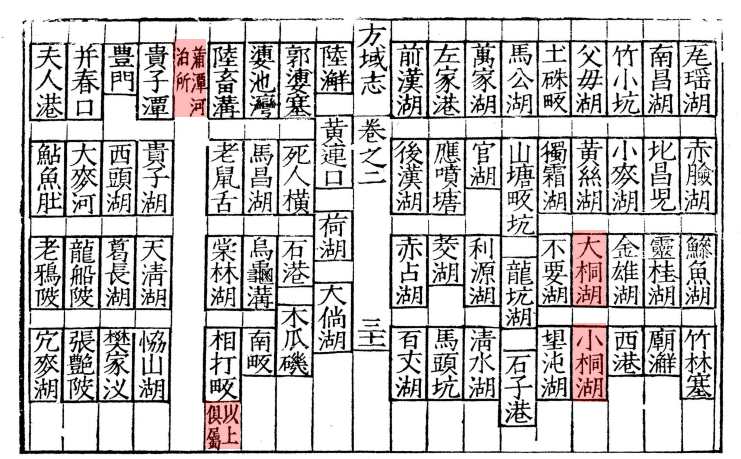 瑶湖 赤臉湖 魚湖 竹林塞
南昌湖 北昌児 靈桂湖 廟澥
竹小坑 小麥湖 金雄湖 西港
父毋湖 黃絲湖 大桐湖 小桐湖
土硃畈 獨霜湖 不要湖 望沌湖
馬公湖 山塘畈坑 龍坑湖 石子港
萬家湖 官湖 利源湖 清水湖
左家港 應噴塘 茭湖 馬頭坑
前漢湖 後漢湖 赤占湖 百丈湖
方域志 卷之二 三十一
陸澥 黃連口 荷湖 大倘湖
郭塞 死人橫 石港 木瓜磯
池灣 馬昌湖 烏龜溝 南畈
陸畜溝 老鼠舌 棠林湖 相打畈 以上俱屬
蒲潭河泊所
貴子潭 貴子湖 天清湖 恊山湖
豐門 西頭湖 葛長湖 樊家汊
并春口 大麥河 龍船陂 張艷陂
夫人港 鮎魚肚 老鴉陂 宂麥湖